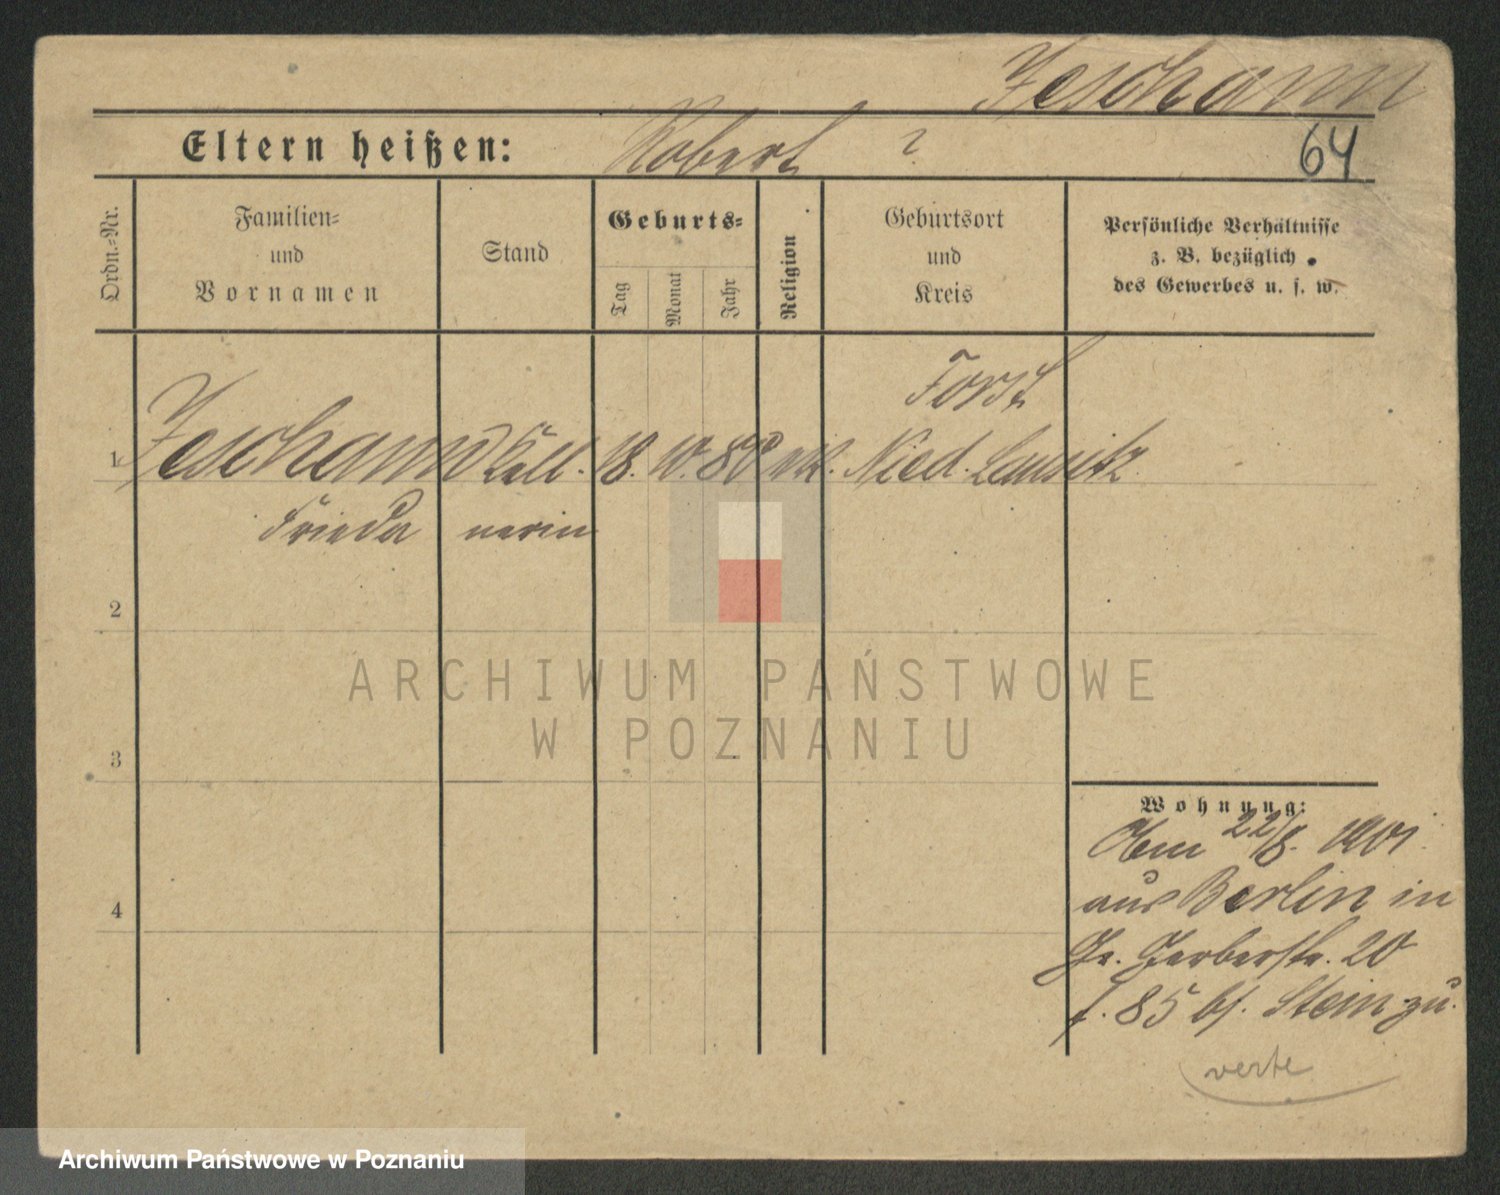 Jeschann
Eltern heißen: Robert ?
64
Ordn.-Nr.
Familien-
und
Vornamen
Stand
Geburts-
Tag
Monat
Jahr
Religion
Geburtsort
und
Kreis
Persönliche Verhältnisse
z. B. bezüglich
des Gewerbes u. s. w.
Forst
1 Jeschann Kell- 18. 10. 80 Nied. Lausitz
Frieda nerin
2
3
4
Wohnung:
22/8. 1901.
aus Berlin in
Gr. Gerberstr. 20
f. 85 bf. Stein zu.
verte
ARCHIWUM PAŃSTWOWE
W POZNANIU
Archiwum Państwowe w Poznaniu